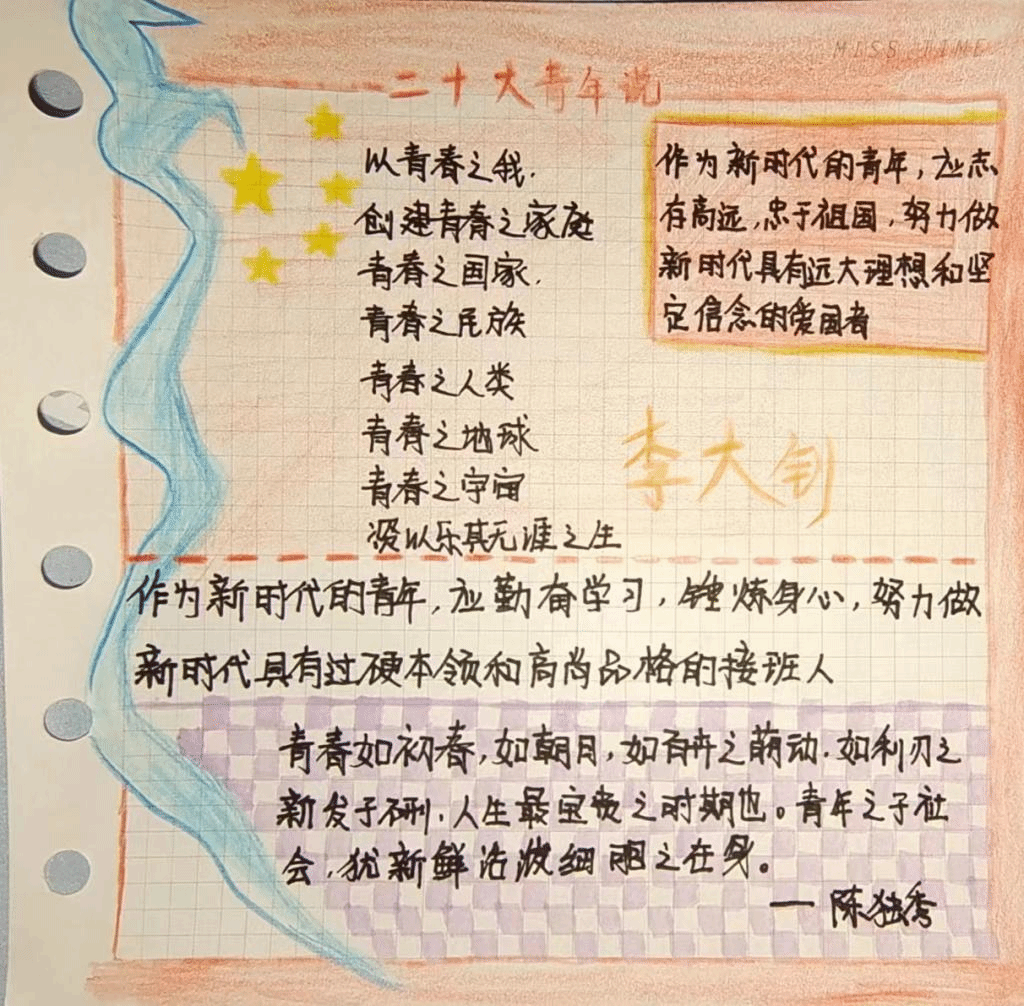 MISS TIME
二十大青年说
以青春之我.
创建青春之家庭
青春之国家.
青春之民族
青春之人类
青春之地球
青春之宇宙
资以乐其无涯之生
李大钊
作为新时代的青年,应志
存高远,忠于祖国,努力做
新时代具有远大理想和坚
定信念的爱国者
作为新时代的青年,应勤奋学习,锤炼身心,努力做
新时代具有过硬本领和高尚品格的接班人
青春如初春,如朝月,如百卉之萌动.如利刃之
新发于硎.人生最宝贵之时期也。青年之于社
会,犹新鲜活泼细胞之在身。
— 陈独秀